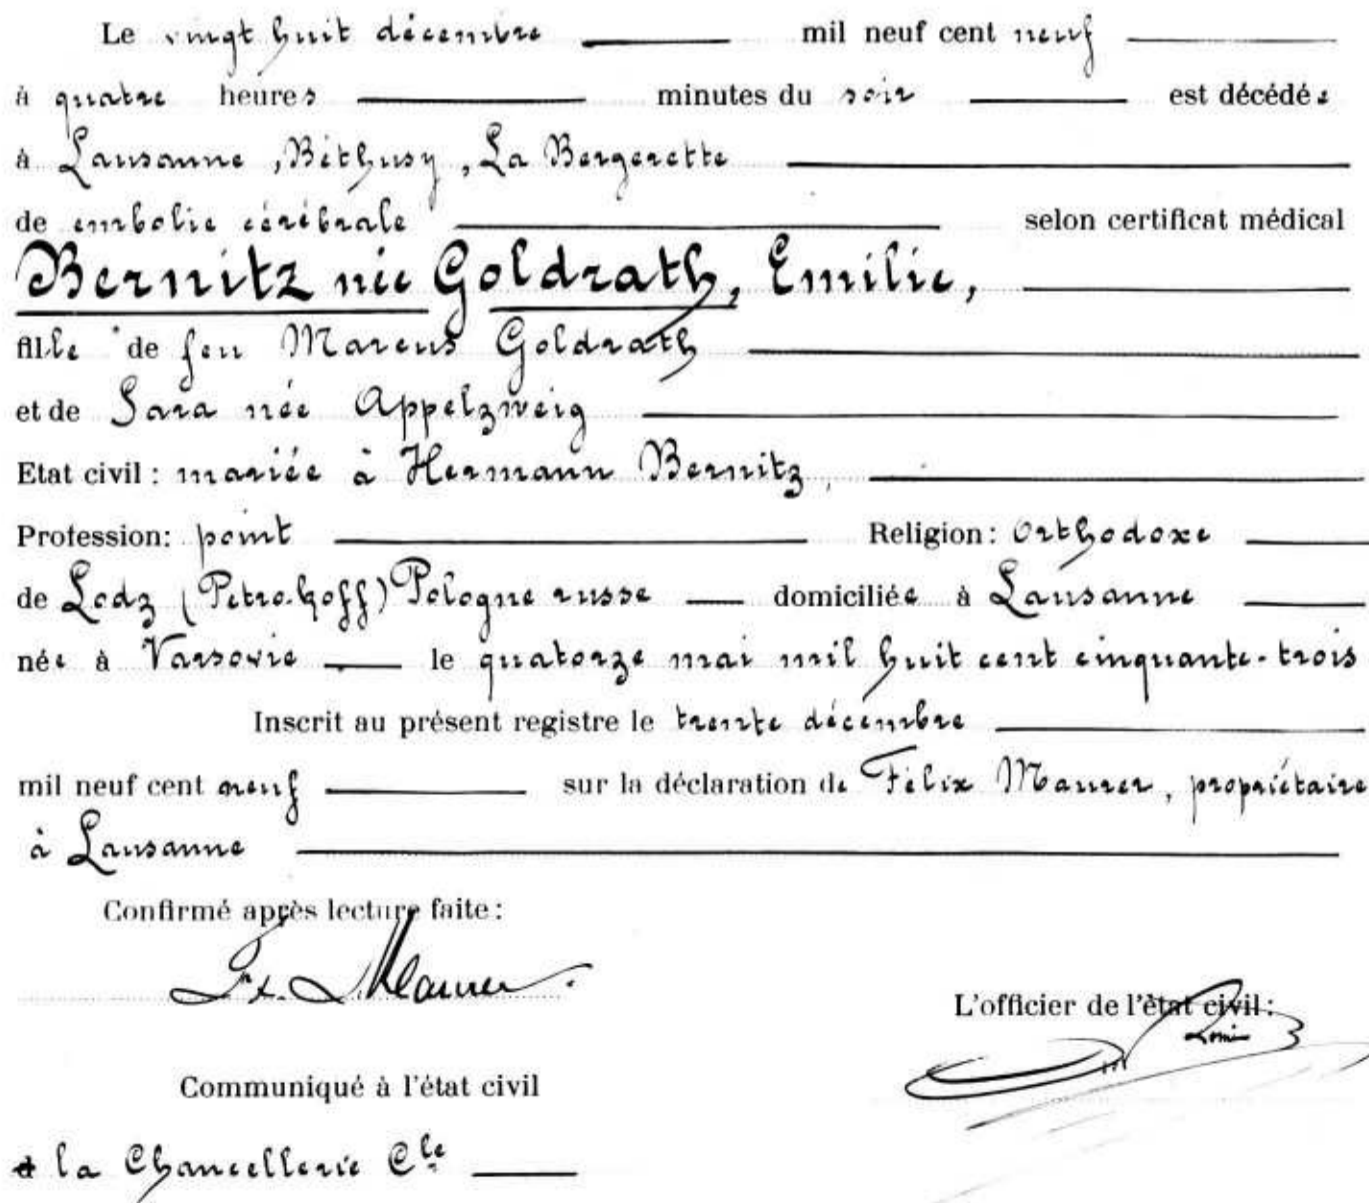 Le vingt huit décembre mil neuf cent neuf
à quatre heures minutes du soir est décédée
à Lausanne, Béthusy, La Bergerette
de embolie cérébrale selon certificat médical
Bernitz née Goldrath, Emilie,
fille de feu Marcus Goldrath
et de Sara née Appelzweig
Etat civil : mariée à Hermann Bernitz,
Profession: point Religion: Orthodoxe
de Lodz (Petrokoff) Pologne russe domiciliée à Lausanne
née à Varsovie le quatorze mai mil huit cent cinquante-trois
Inscrit au présent registre le trente décembre
mil neuf cent neuf sur la déclaration de Félix Maurer, propriétaire
à Lausanne
Confirmé après lecture faite :
Fx. Maurer.
L'officier de l'état civil :
Communiqué à l'état civil
à la Chancellerie Cle